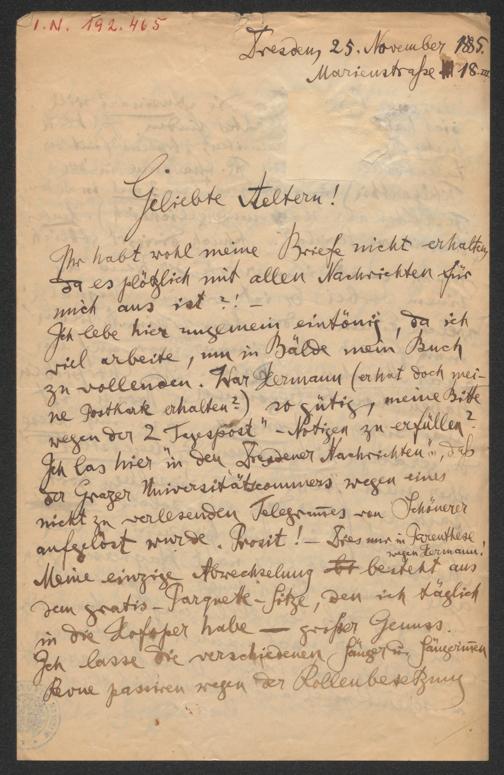 I.N. 192.465
Dresden, 25. November 1885.
Marienstraße 18. III
Geliebte Aeltern!
Ihr habt wohl meine Briefe nicht erhalten,
da es plötzlich mit allen Nachrichten für
mich aus ist?! –
Ich lebe hier ungemein eintönig, da ich
viel arbeite, um in Bälde mein Buch
zu vollenden. War Hermann (er hat doch mei-
ne Postkarte erhalten?) so gütig, meine Bitte
wegen der 2 Tagespost"-Notizen zu erfüllen?
Ich las hier in den "Dresdener Nachrichten", daß
der Grazer Universitätscommers wegen eines
nicht zu verlesenden Telegrammes von Schönerer
aufgelöst wurde. Prosit! – Dies nur in Parenthese
wegen Hermann!
Meine einzige Abwechselung besteht aus
dem gratis-Parquett-Sitze, den ich täglich
in die Hofoper habe — großer Genuss.
Ich lasse die verschiedenen Sänger u. Sängerinnen
Revue passiren wegen der Rollenbesetzung